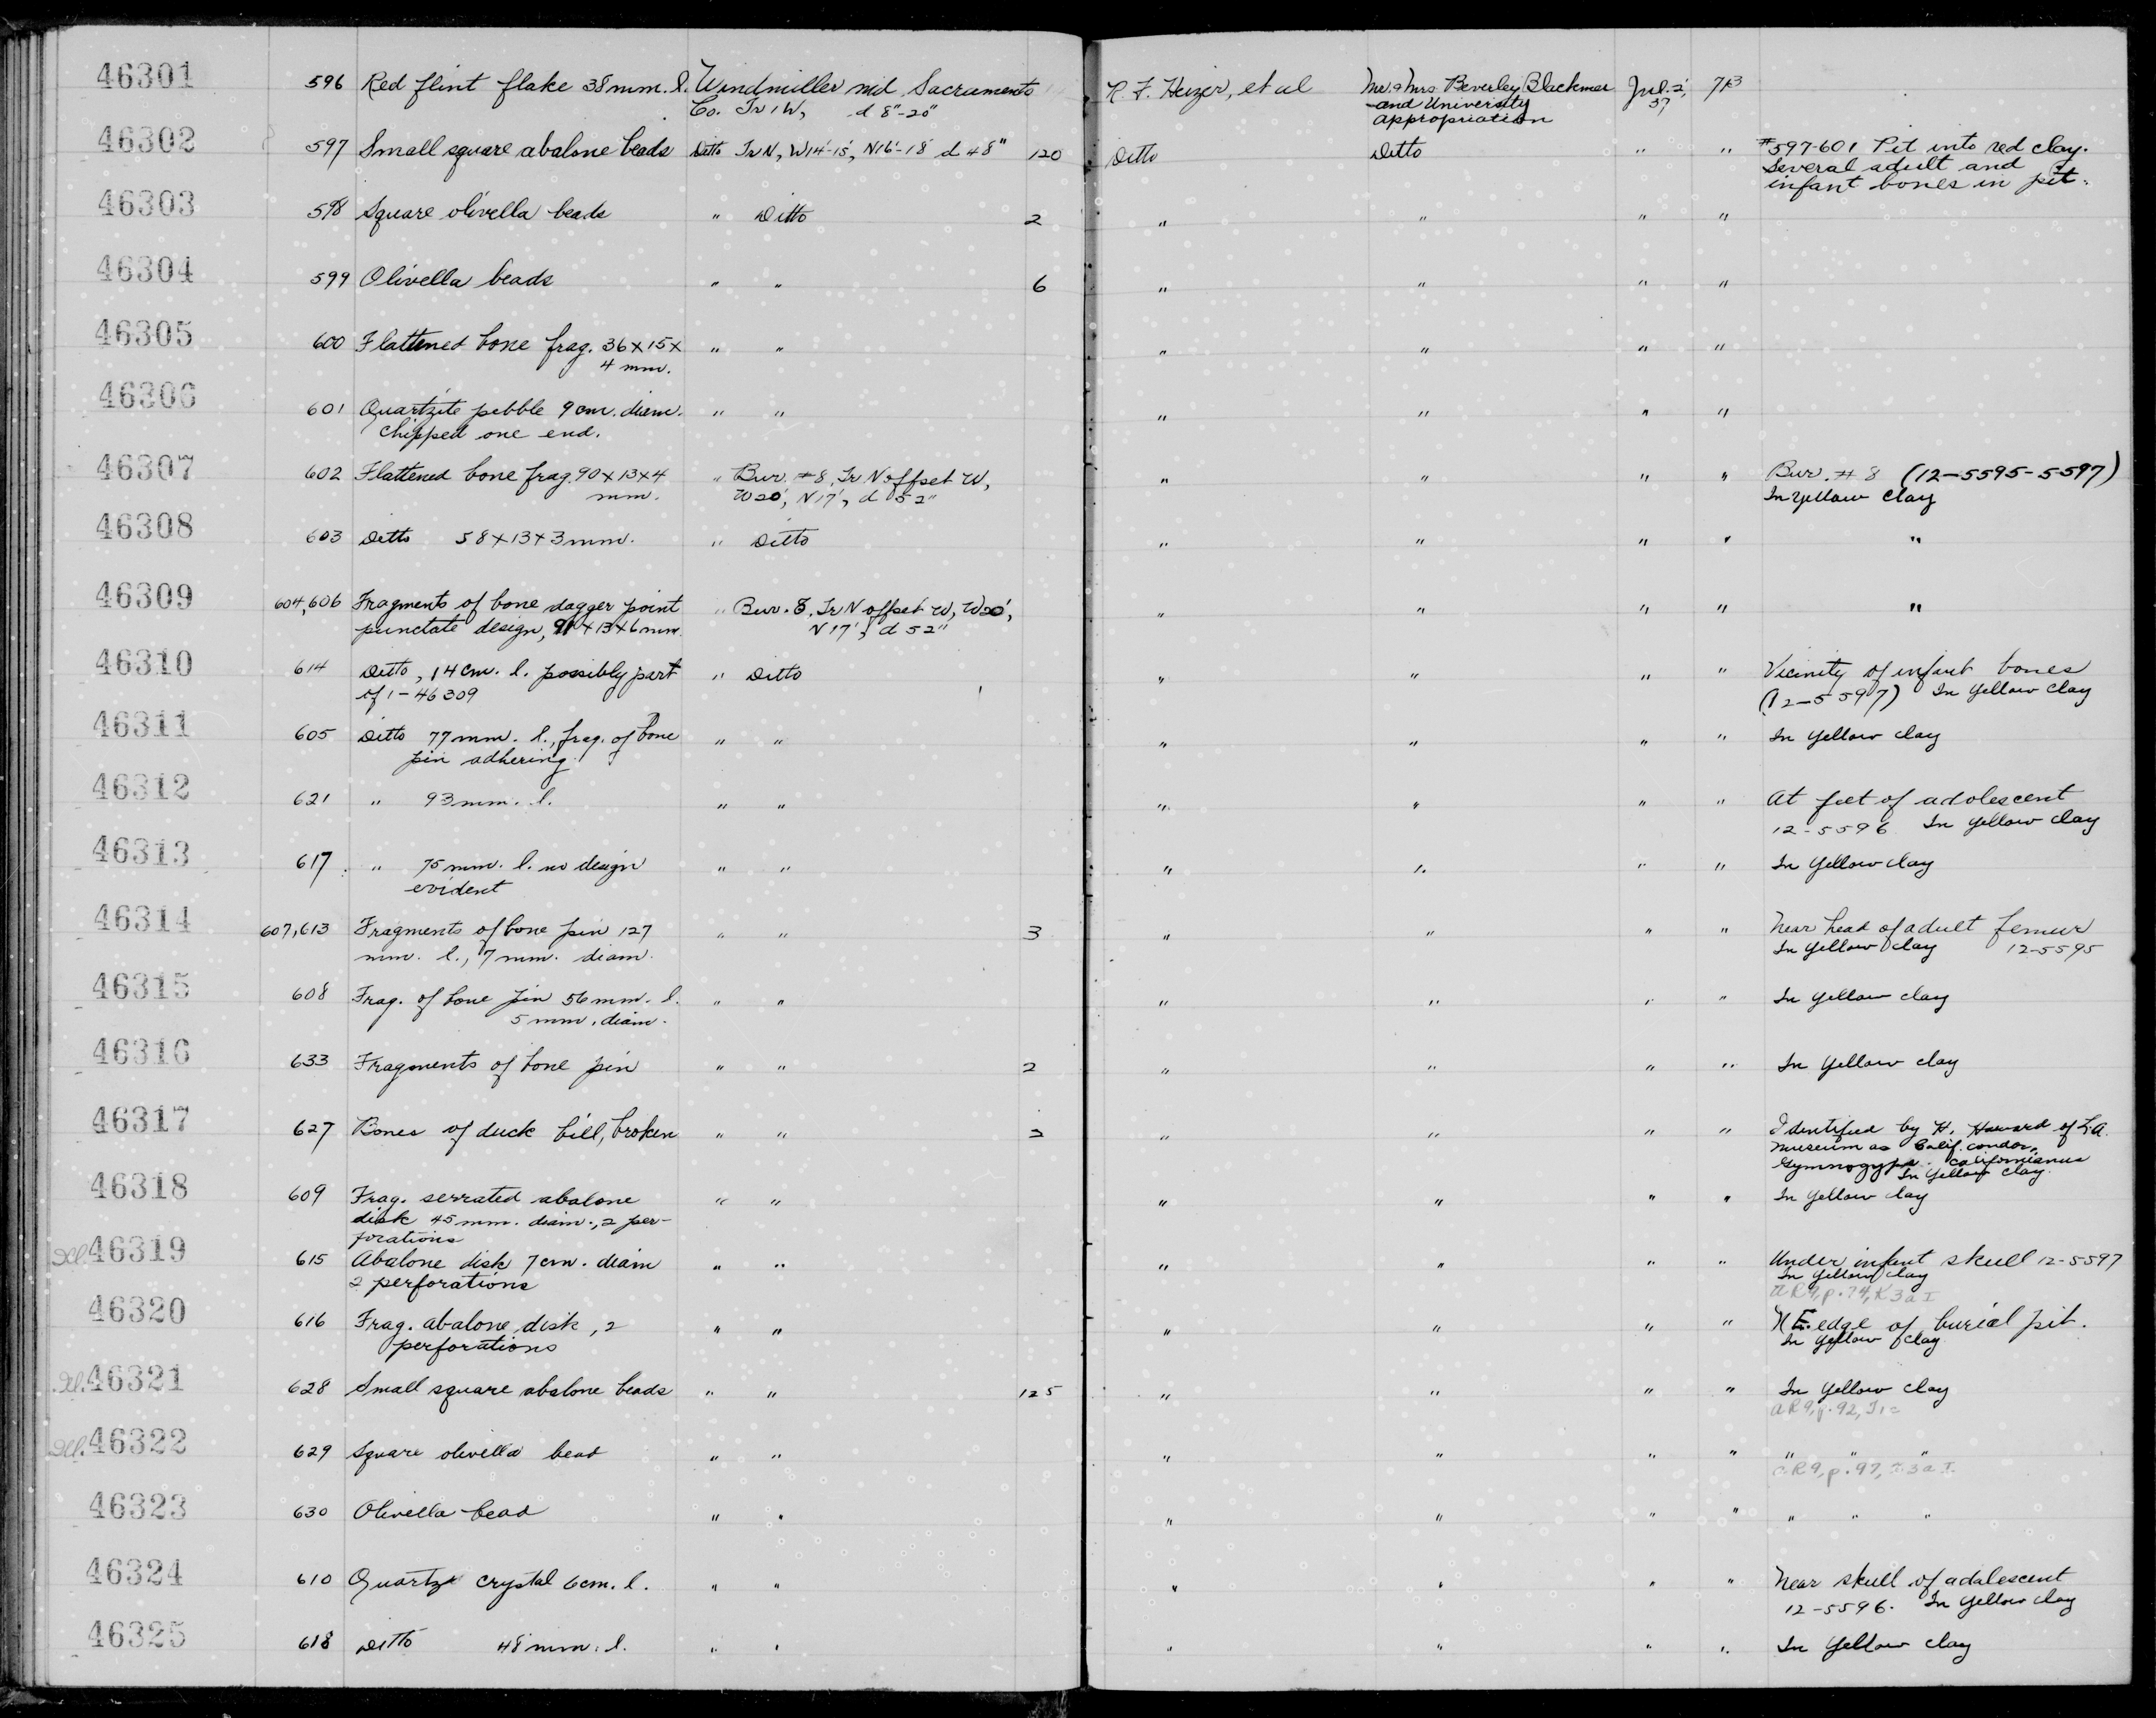 46301 596 Red flint flake 38 mm. l. Windmiller md, Sacramento R. F. Heizer, et al Mr. & Mrs. Beverley Blackmer Jul. 2,
Co. Tr 1 W, d 8"-20" and University 37
appropriation
46302 597 Small square abalone beads Ditto Tr N, W14'-15', N16'-18' d 48" 120 Ditto Ditto " " #597-601 Pit into red clay.
Several adult and
infant bones in pit.
46303 598 Square olivella beads " Ditto 2 " " " "
46304 599 Olivella beads " " 6 " " " "
46305 600 Flattened bone frag. 36 x 15 x " " " " " "
4 mm.
46306 601 Quartzite pebble 9 cm. diam. " " " " " "
chipped one end.
46307 602 Flattened bone frag. 90 x 13 x 4 " Bur. #8, Tr N offset W, " " " " Bur. #8 (12-5595-5597)
mm. W20', N17', d 52" In yellow clay
46308 603 Ditto 58 x 13 x 3 mm. " Ditto " " " " "
46309 604,606 Fragments of bone dagger point " Bur. 8, Tr N offset W, W20', " " " " "
punctate design, 91 x 13 x 6 mm. N17', d 52"
46310 614 Ditto, 14 cm. l. possibly part " Ditto " " " " Vicinity of infant bones
of 1-46309 (12-5597) In yellow clay
46311 605 Ditto 77 mm. l., frag. of bone " " " " " " In yellow clay
pin adhering.
46312 621 " 93 mm. l. " " " " " " At feet of adolescent
12-5596 In yellow clay
46313 617 " 75 mm. l. no design " " " " " " In yellow clay
evident
46314 607,613 Fragments of bone pin 127 " " 3 " " " " Near head of adult femur
mm. l., 7 mm. diam. In yellow clay 12-5595
46315 608 Frag. of bone pin 56 mm. l. " " " " " " In yellow clay
5 mm. diam.
46316 633 Fragments of bone pin " " 2 " " " " In yellow clay
46317 627 Bones of duck bill, broken " " 2 " " " " Identified by H. Howard of L.A.
Museum as Calif. condor,
Gymnogyps californianus
In yellow clay.
46318 609 Frag. serrated abalone " " " " " " In yellow clay
disk 45 mm. diam., 2 per-
forations
46319 615 Abalone disk 7 cm. diam " " " " " " Under infant skull 12-5597
2 perforations In yellow clay
AR9, p. 74, K3aI
46320 616 Frag. abalone disk, 2 " " " " " " N E. edge of burial pit.
perforations In yellow clay
46321 628 Small square abalone beads " " 125 " " " " In yellow clay
AR9, p. 92,
46322 629 Square olivella bead " " " " " " " " "
AR9, p. 97,
46323 630 Olivella bead " " " " " " " " "
46324 610 Quartz crystal 6 cm. l. " " " " " " Near skull of adolescent
12-5596. In yellow clay
46325 618 Ditto 48 mm. l. " " " " " " In yellow clay